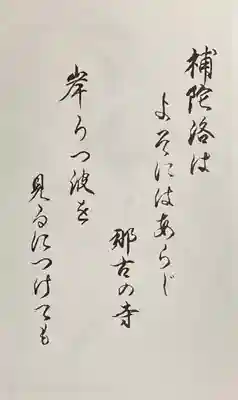 補陀洛は
よそにはあらじ
那古の寺
岸うつ波を
見るにつけても